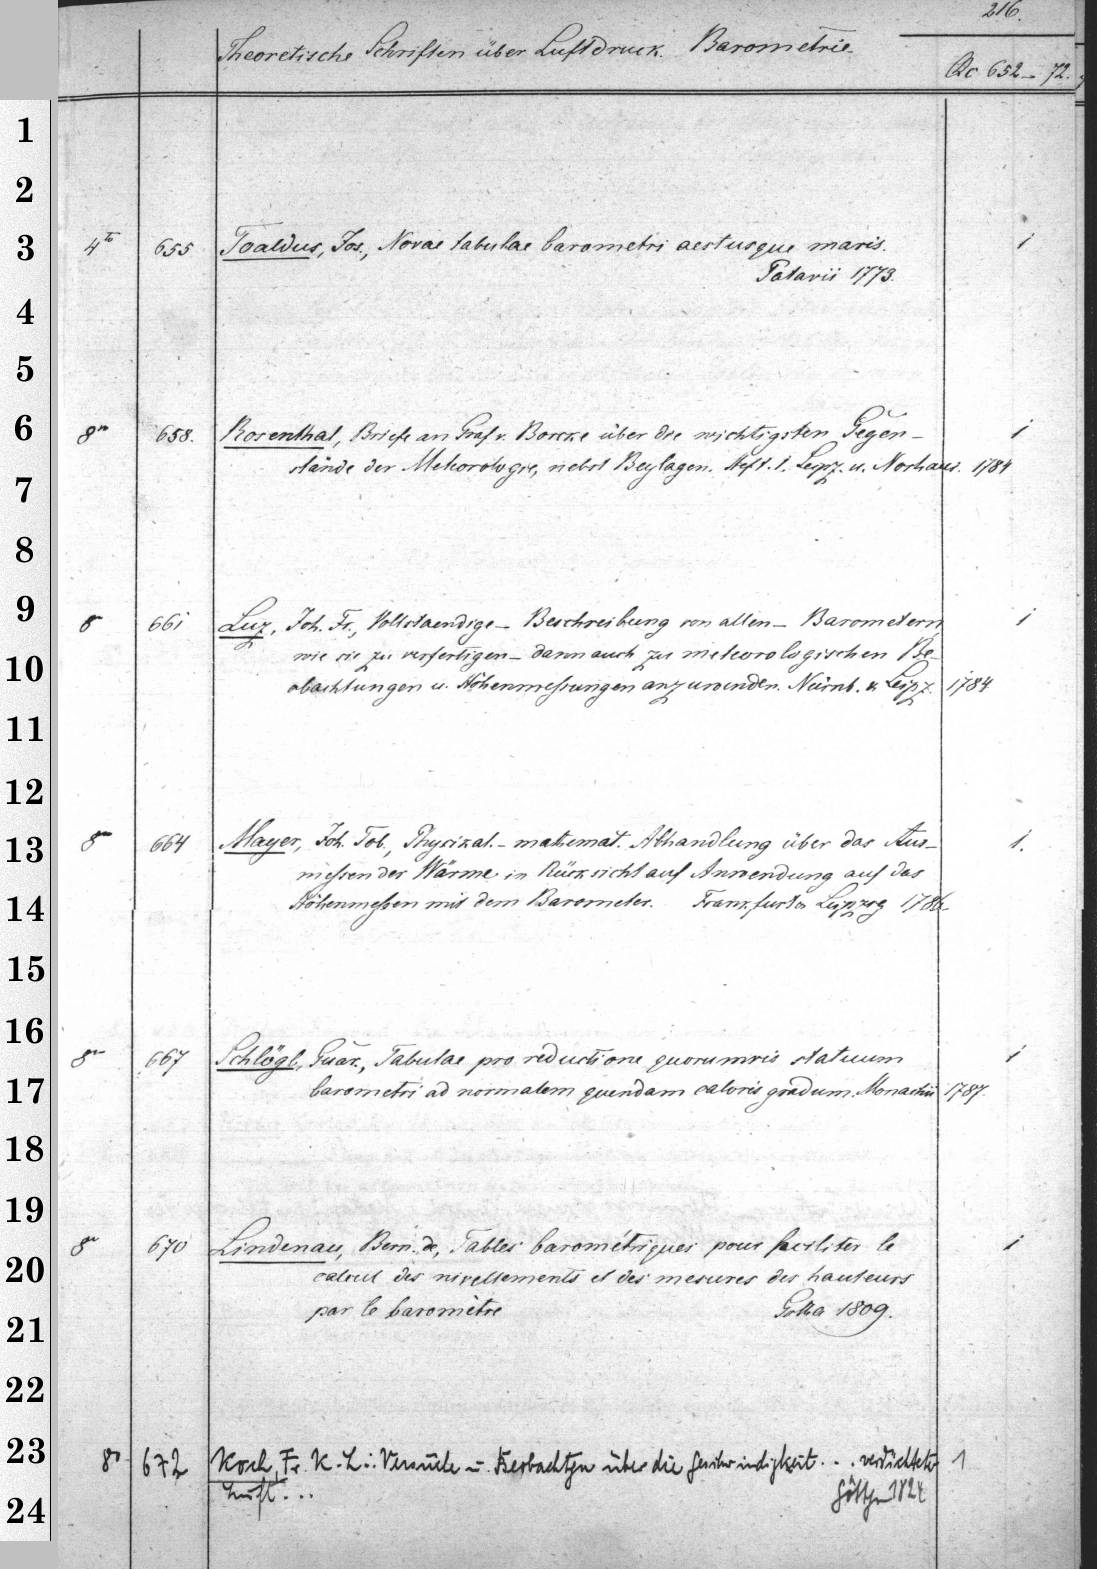 216.
Theoretische Schriften über Luftdruck. Barometrie.
Qc 652 – 72.
1
2
3 4to 655 Toaldus, Jos., Novae tabulae barometri aestusque maris. 1
Patavii 1773.
4
5
6 8vo 658. Rosenthal, Briefe an Graf v. Borcke über die wichtigsten Gegen- 1
stände der Meteorologie, nebst Beylagen. Heft. 1. Leipz. u. Norhaus. 1784
7
8
9 8 661 Luz, Joh. Fr., Vollstaendige – Beschreibung von allen – Barometern 1
10 wie sie zu verfertigen – dann auch zu meteorologischen Be-
obachtungen u. Höhenmessungen anzuwenden. Nürnb. u. Leipz. 1784
11
12
13 8vo 664 Mayer, Joh. Tob., Physikal.-mathemat. Abhandlung über das Aus- 1.
messen der Wärme in Rücksicht auf Anwendung auf das
14 Höhenmessen mit dem Barometer. Frankfurt u. Leipzig 1786
15
16
8vo 667 Schlögl, Guar., Tabulae pro reductione quorumvis statuum 1
17 barometri ad normalem quendam caloris gradum. Monachii 1787.
18
19
8vo 670 Lindenau, Bern. de, Tables barométriques pour faciliter le 1
20 calcul des nivellements et des mesures des hauteurs
par le baromètre Gotha 1809.
21
22
23 8o 672 Koch, Fr. K. L.: Versuche u. Beobachtgn über die Geschwindigkeit . . . verdichteter 1
Luft . . . Göttgn 1824
24